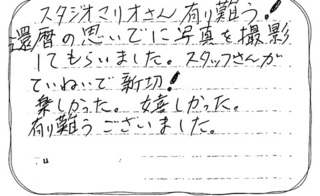 スタジオマリオさん有り難う!
還暦の思いでに写真を撮影
してもらいました。スタッフさんが
ていねいで新切!
楽しかった。嬉しかった。
有り難うございました。